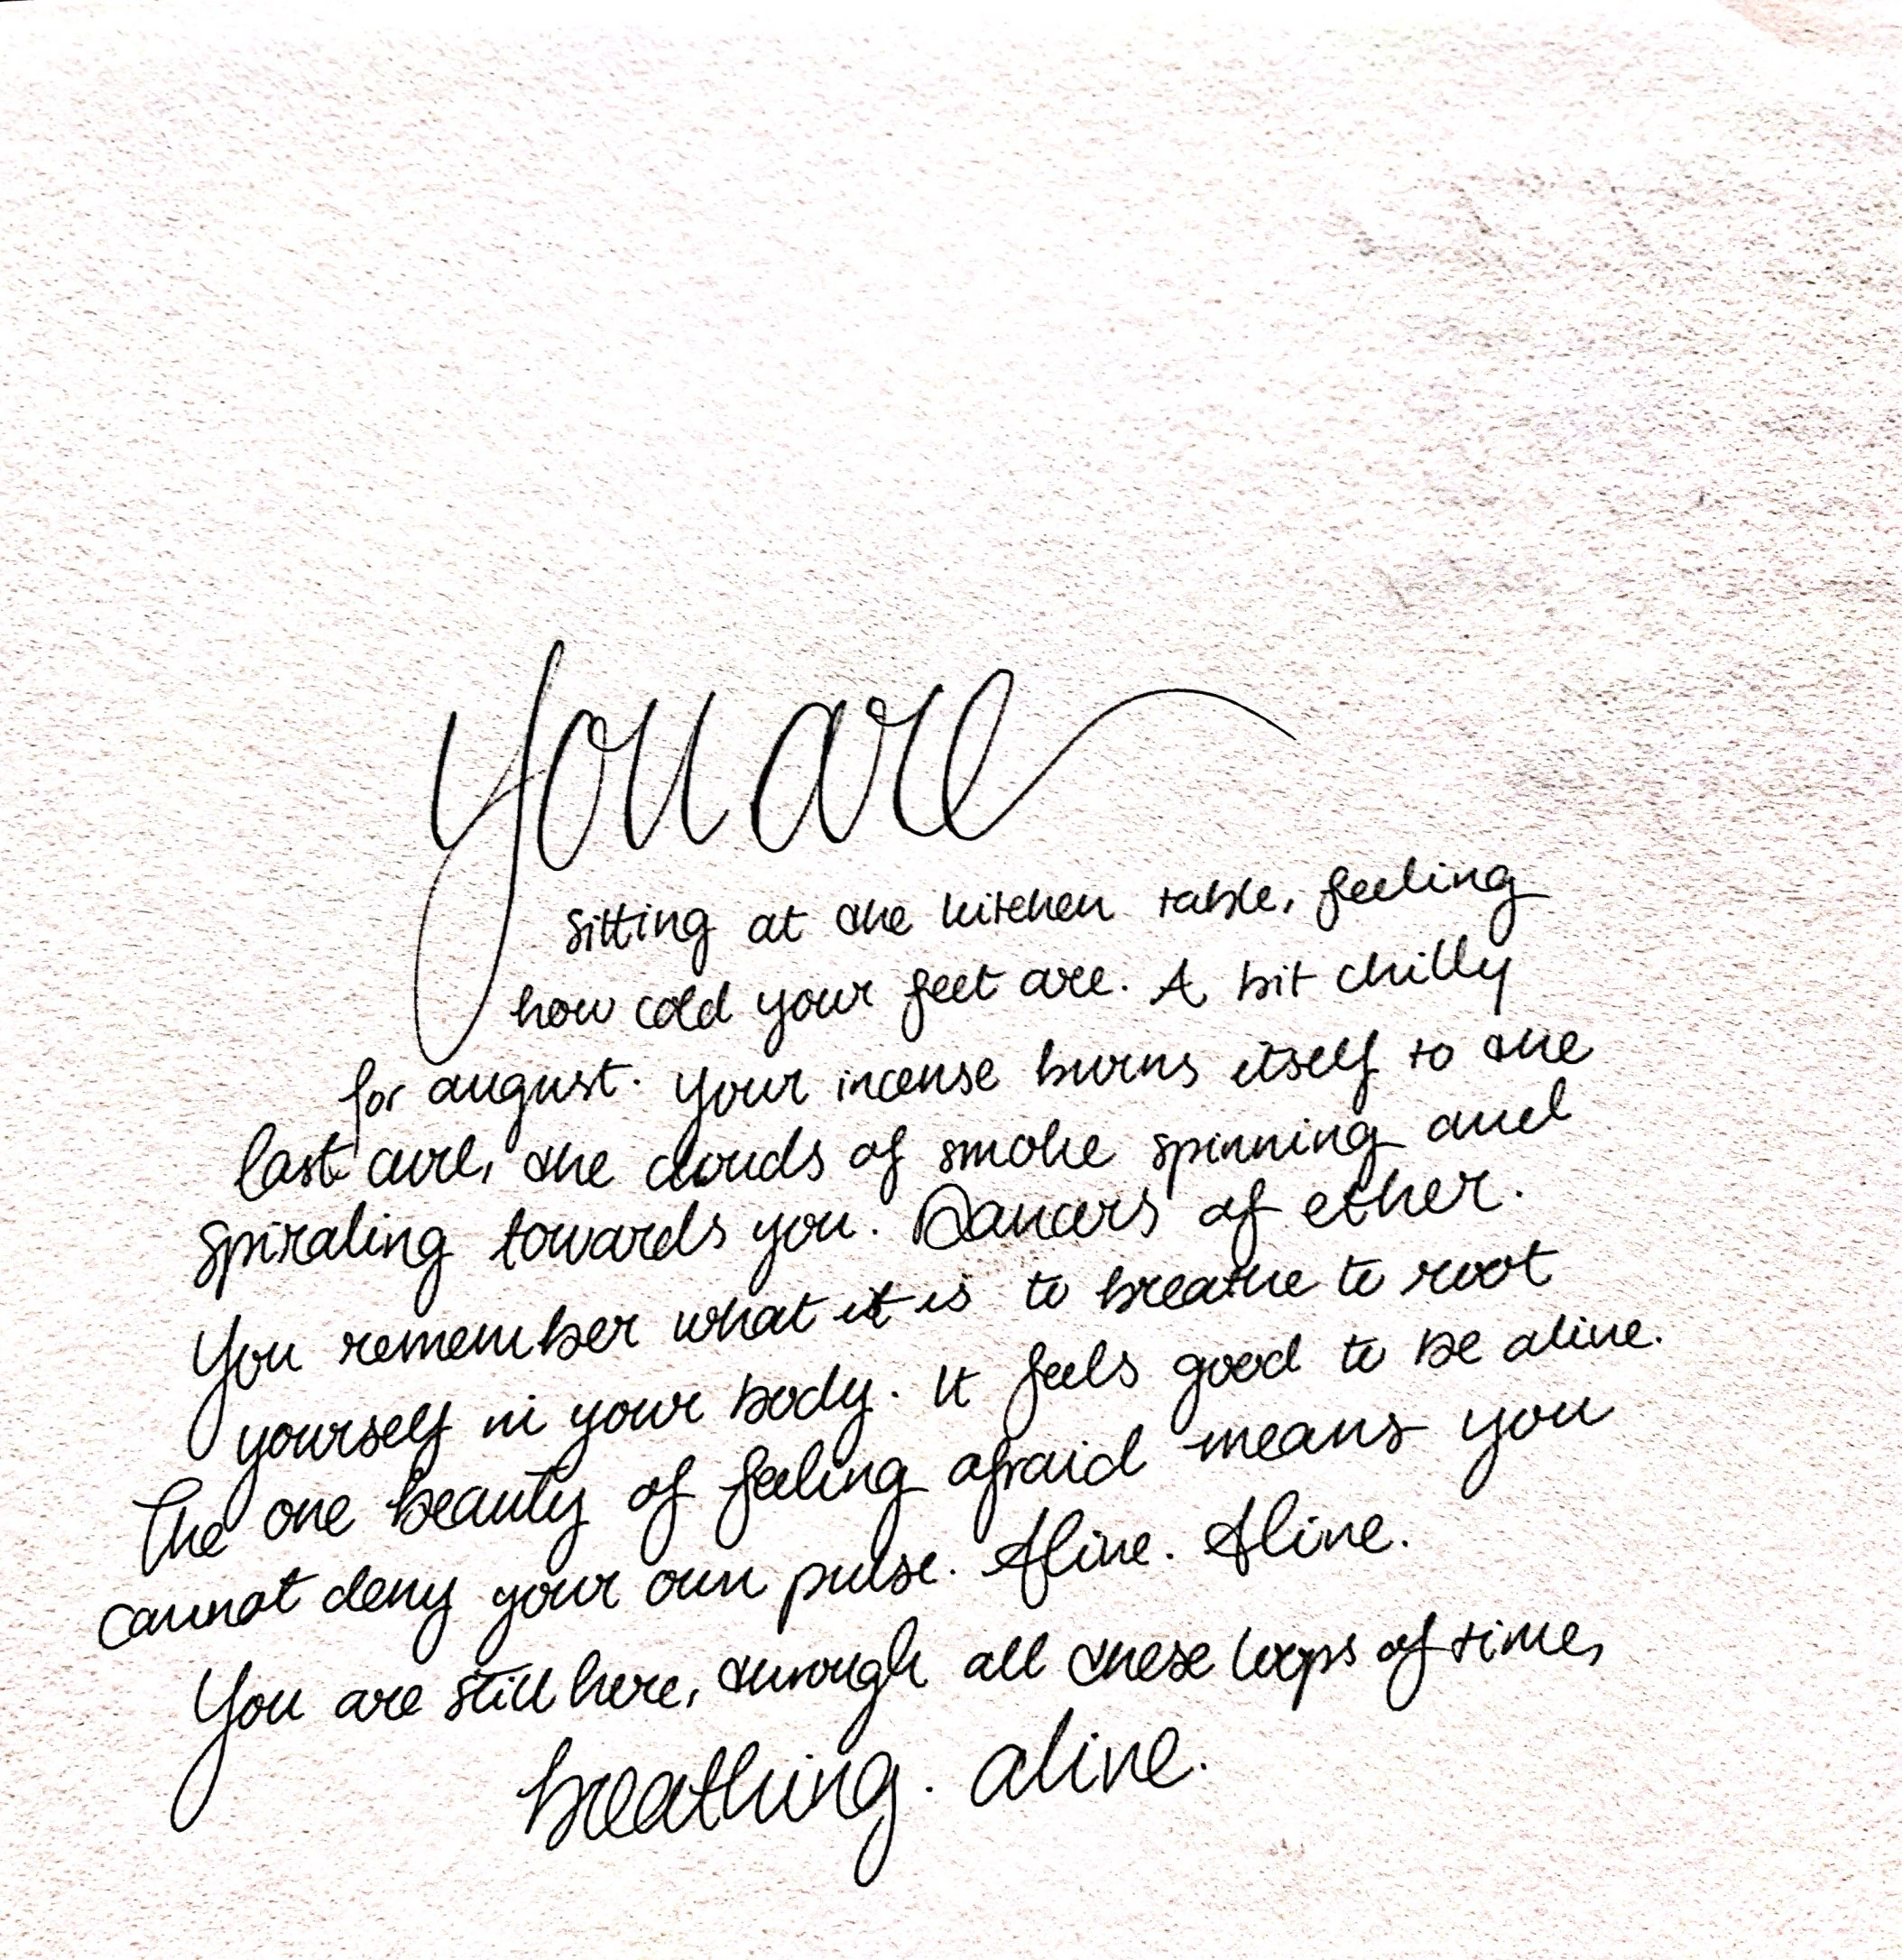 You are
sitting at the kitchen table, feeling
how cold your feet are. A bit chilly
for august. Your incense burns itself to the
last curl, the clouds of smoke spinning and
spiraling towards you. Dancers of ether.
You remember what it is to breathe to root
yourself in your body. It feels good to be alive.
The one beauty of feeling afraid means you
cannot deny your own pulse. Alive. Alive.
You are still here, through all these loops of time,
breathing. alive.